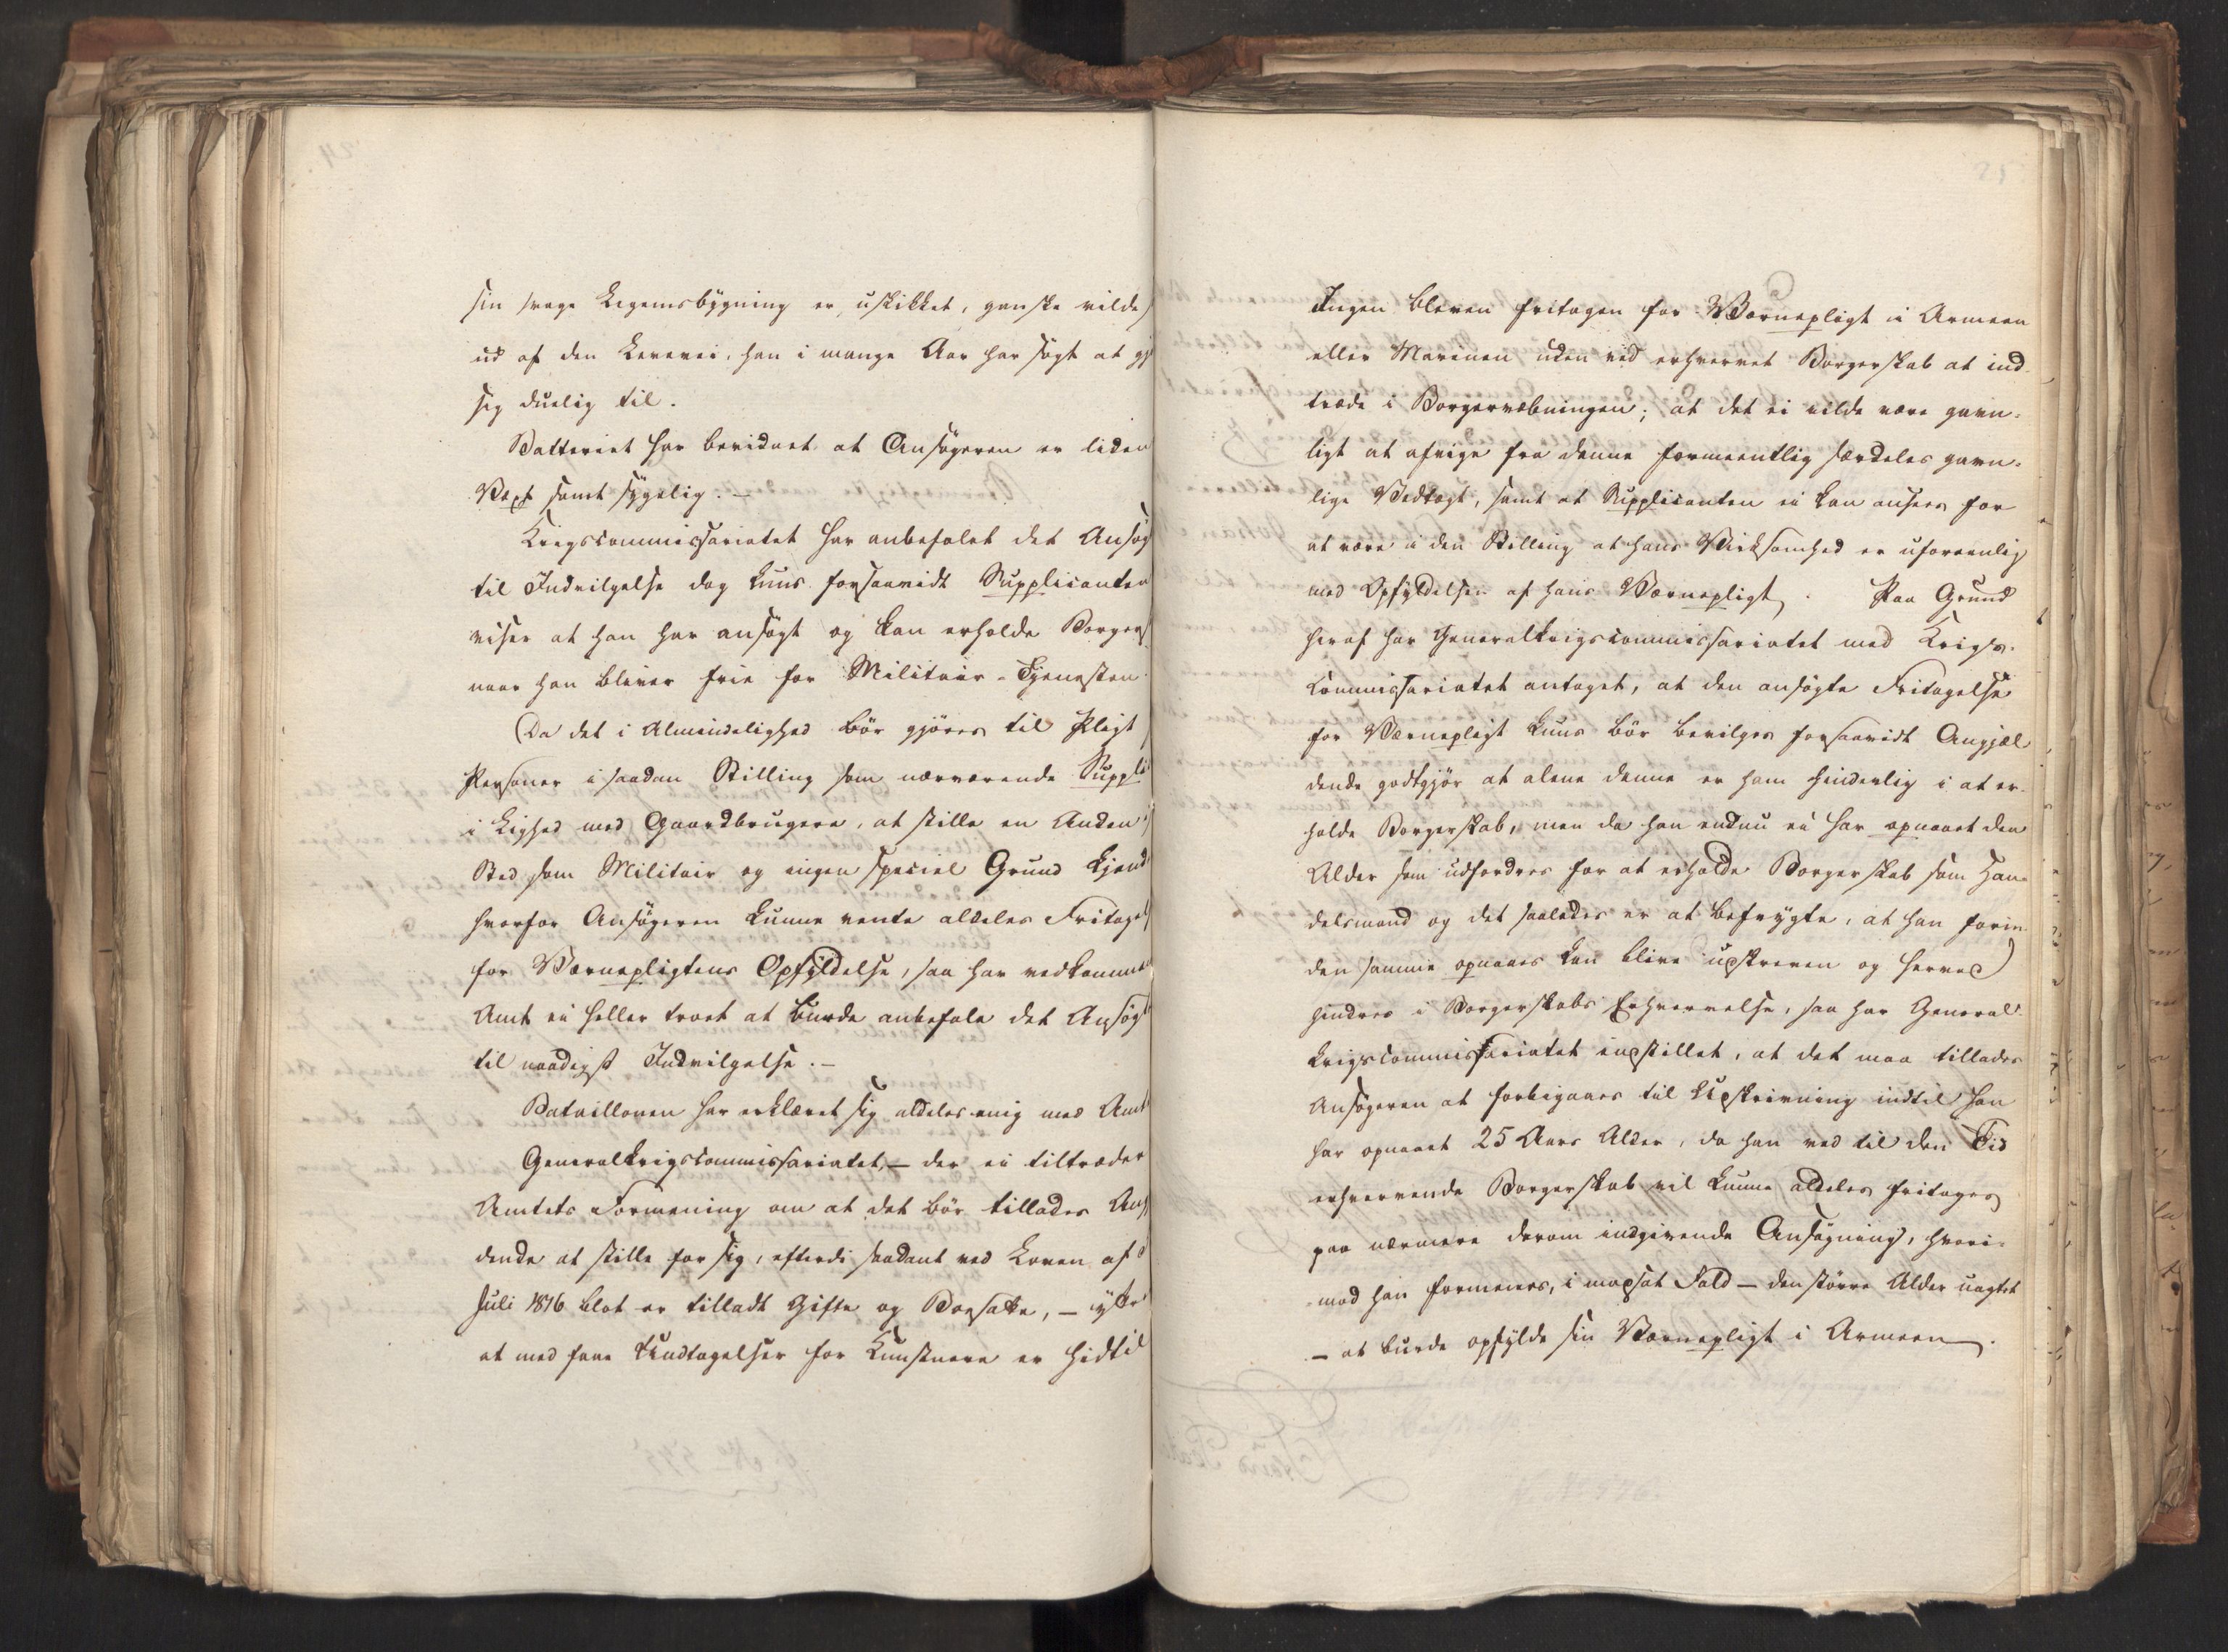 sin svage Legemsbygning er uskikket, ganske vilde
ud af den Levevei, han i mange Aar har søgt at gj
sig duelig til.
Batteriet har bevidnet at Ansøgeren er liden
Vext samt sygelig. —
Krigscommissariatet har anbefalet det Ansøg
til Indvilgelse dog kuns forsaavidt Supplicanten
viser at han har ansøgt og kan erholde Borgers
naar han bliver frie for Militair-Tjenesten
Da det i Almindelighed bör gjöres til Pligt
Personer i saadan Stilling som nærværende Suppli
i Lighed med Gaardbrugere, at stille en Anden i
Sted som Militair og ingen speciel Grund kjend
hvorfor Ansøgeren kunne vente aldeles Fritagel
for Værnepligtens Opfyldelse, saa har vedkomme
Amt ei heller troet at burde anbefale det Ansøgt
til naadigst Indvilgelse. —
Bataillonen har erklæret sig aldeles enig med Amt
Generalkrigscommissariatet, — der ei tiltræder
Amtets Formening om at det bör tillades Ans
dende at stille for sig, efterdi saadant ved Loven af
Juli 1816 blot er tilladt Gifte og Bosatte, — ytrer
at med faae Undtagelser for Kunstnere er hidtil
25
Ingen bleven fritagen for Værnepligt i Armeen
eller Marinen uden ved erhvervet Borgerskab at ind-
træde i Borgervæbningen; at det ei vilde være gavn-
ligt at afvige fra denne formeentlig særdeles gavn-
lige Vedtægt, samt at Supplicanten ei kan ansees for
at være i den Stilling at hans Virksomhed er uforeenlig
med Opfyldelsen af hans Værnepligt. Paa Grund
heraf har Generalkrigscommissariatet med Krigs-
Commissariatet antaget, at den ansøgte Fritagelse
for Værnepligt kuns bör bevilges forsaavidt Angjæl-
dende godtgjör at alene denne er ham hinderlig i at er-
holde Borgerskab, men da han endnu ei har opnaaet den
Alder som udfordres for at erholde Borgerskab som Han-
delsmand og det saaledes er at befrygte, at han forin-
den samme opnaaes kan blive udskreven og herved
hindres i Borgerskabs Erhvervelse, saa har General-
krigscommissariatet indstillet, at det maa tillades
Ansøgeren at forbigaaes til Udskrivning indtil han
har opnaaet 25 Aars Alder, da han ved til den Tid
erhvervende Borgerskab vil kunne aldeles fritages
paa nærmere derom indgivende Ansøgning, hvori-
mod han formenes, i modsat Fald — den större Alder uagtet
— at burde opfylde sin Værnepligt i Armeen.